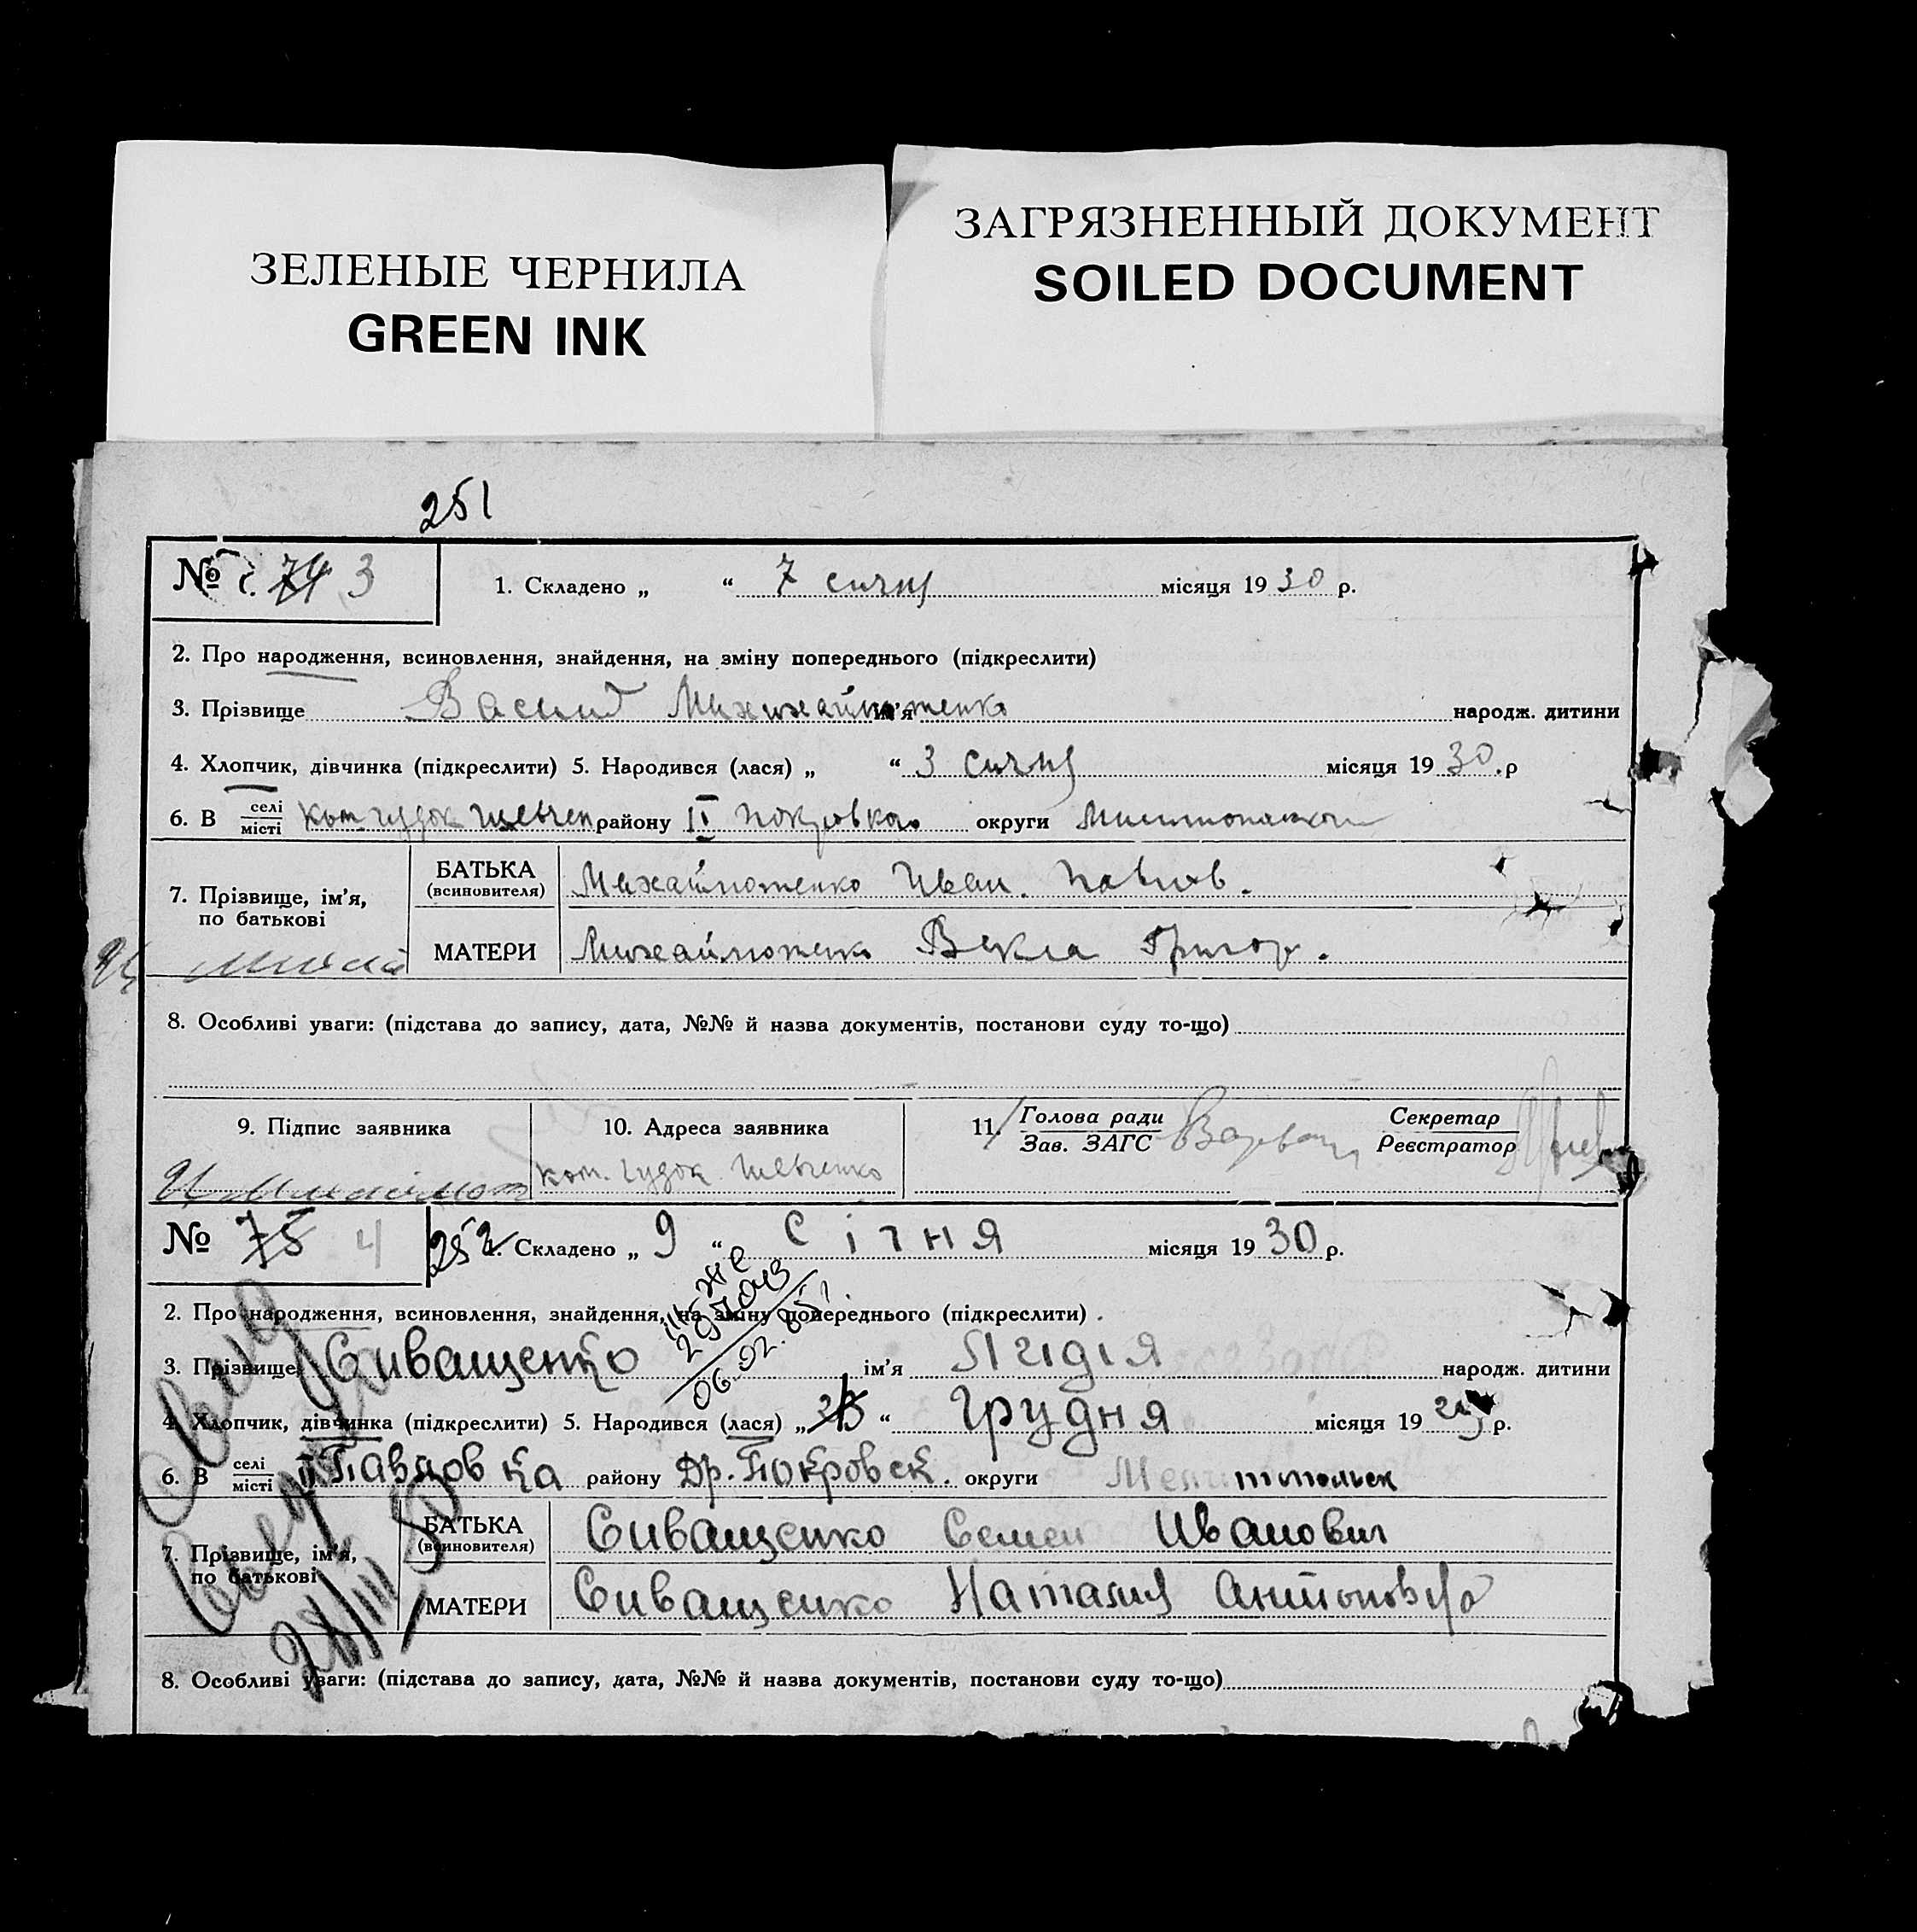 ЗЕЛЕНЫЕ ЧЕРНИЛА
GREEN INK
ЗАГРЯЗНЕННЫЙ ДОКУМЕНТ
SOILED DOCUMENT
251
№ 74 3
1. Складено „ “ 7 січня місяця 1930 р.
2. Про народження, всиновлення, знайдення, на зміну попереднього (підкреслити)
3. Прізвище ім'я народж. дитини
4. Хлопчик, дівчинка (підкреслити) 5. Народився (лася) „ “ 3 січня місяця 1930.р
6. В селі місті району II Покровко округи
7. Прізвище, ім'я, по батькові
БАТЬКА (всиновителя) Иван. Павлов.
МАТЕРИ Векла Григор.
8. Особливі уваги: (підстава до запису, дата, №№ й назва документів, постанови суду то-що)
9. Підпис заявника
10. Адреса заявника
11. Голова ради Зав. ЗАГС
Секретар Реєстратор
ком. гудок Шевченко
№ 75 4
252 1. Складено „ 9 “ Січня місяця 1930 р.
2. Про народження, всиновлення, знайдення, на зміну попереднього (підкреслити)
06.02.85
3. Прізвище Сиващенко ім'я Лідія народж. дитини
4. Хлопчик, дівчинка (підкреслити) 5. Народився (лася) „ “ Грудня місяця 1929 р.
6. В селі місті II Павловка району Др. Покровск. округи Мелитопольск
7. Прізвище, ім'я, по батькові
БАТЬКА (всиновителя) Сиващенко Семен Иванович
МАТЕРИ Сиващенко Наталия Антоновна
8. Особливі уваги: (підстава до запису, дата, №№ й назва документів, постанови суду то-що)